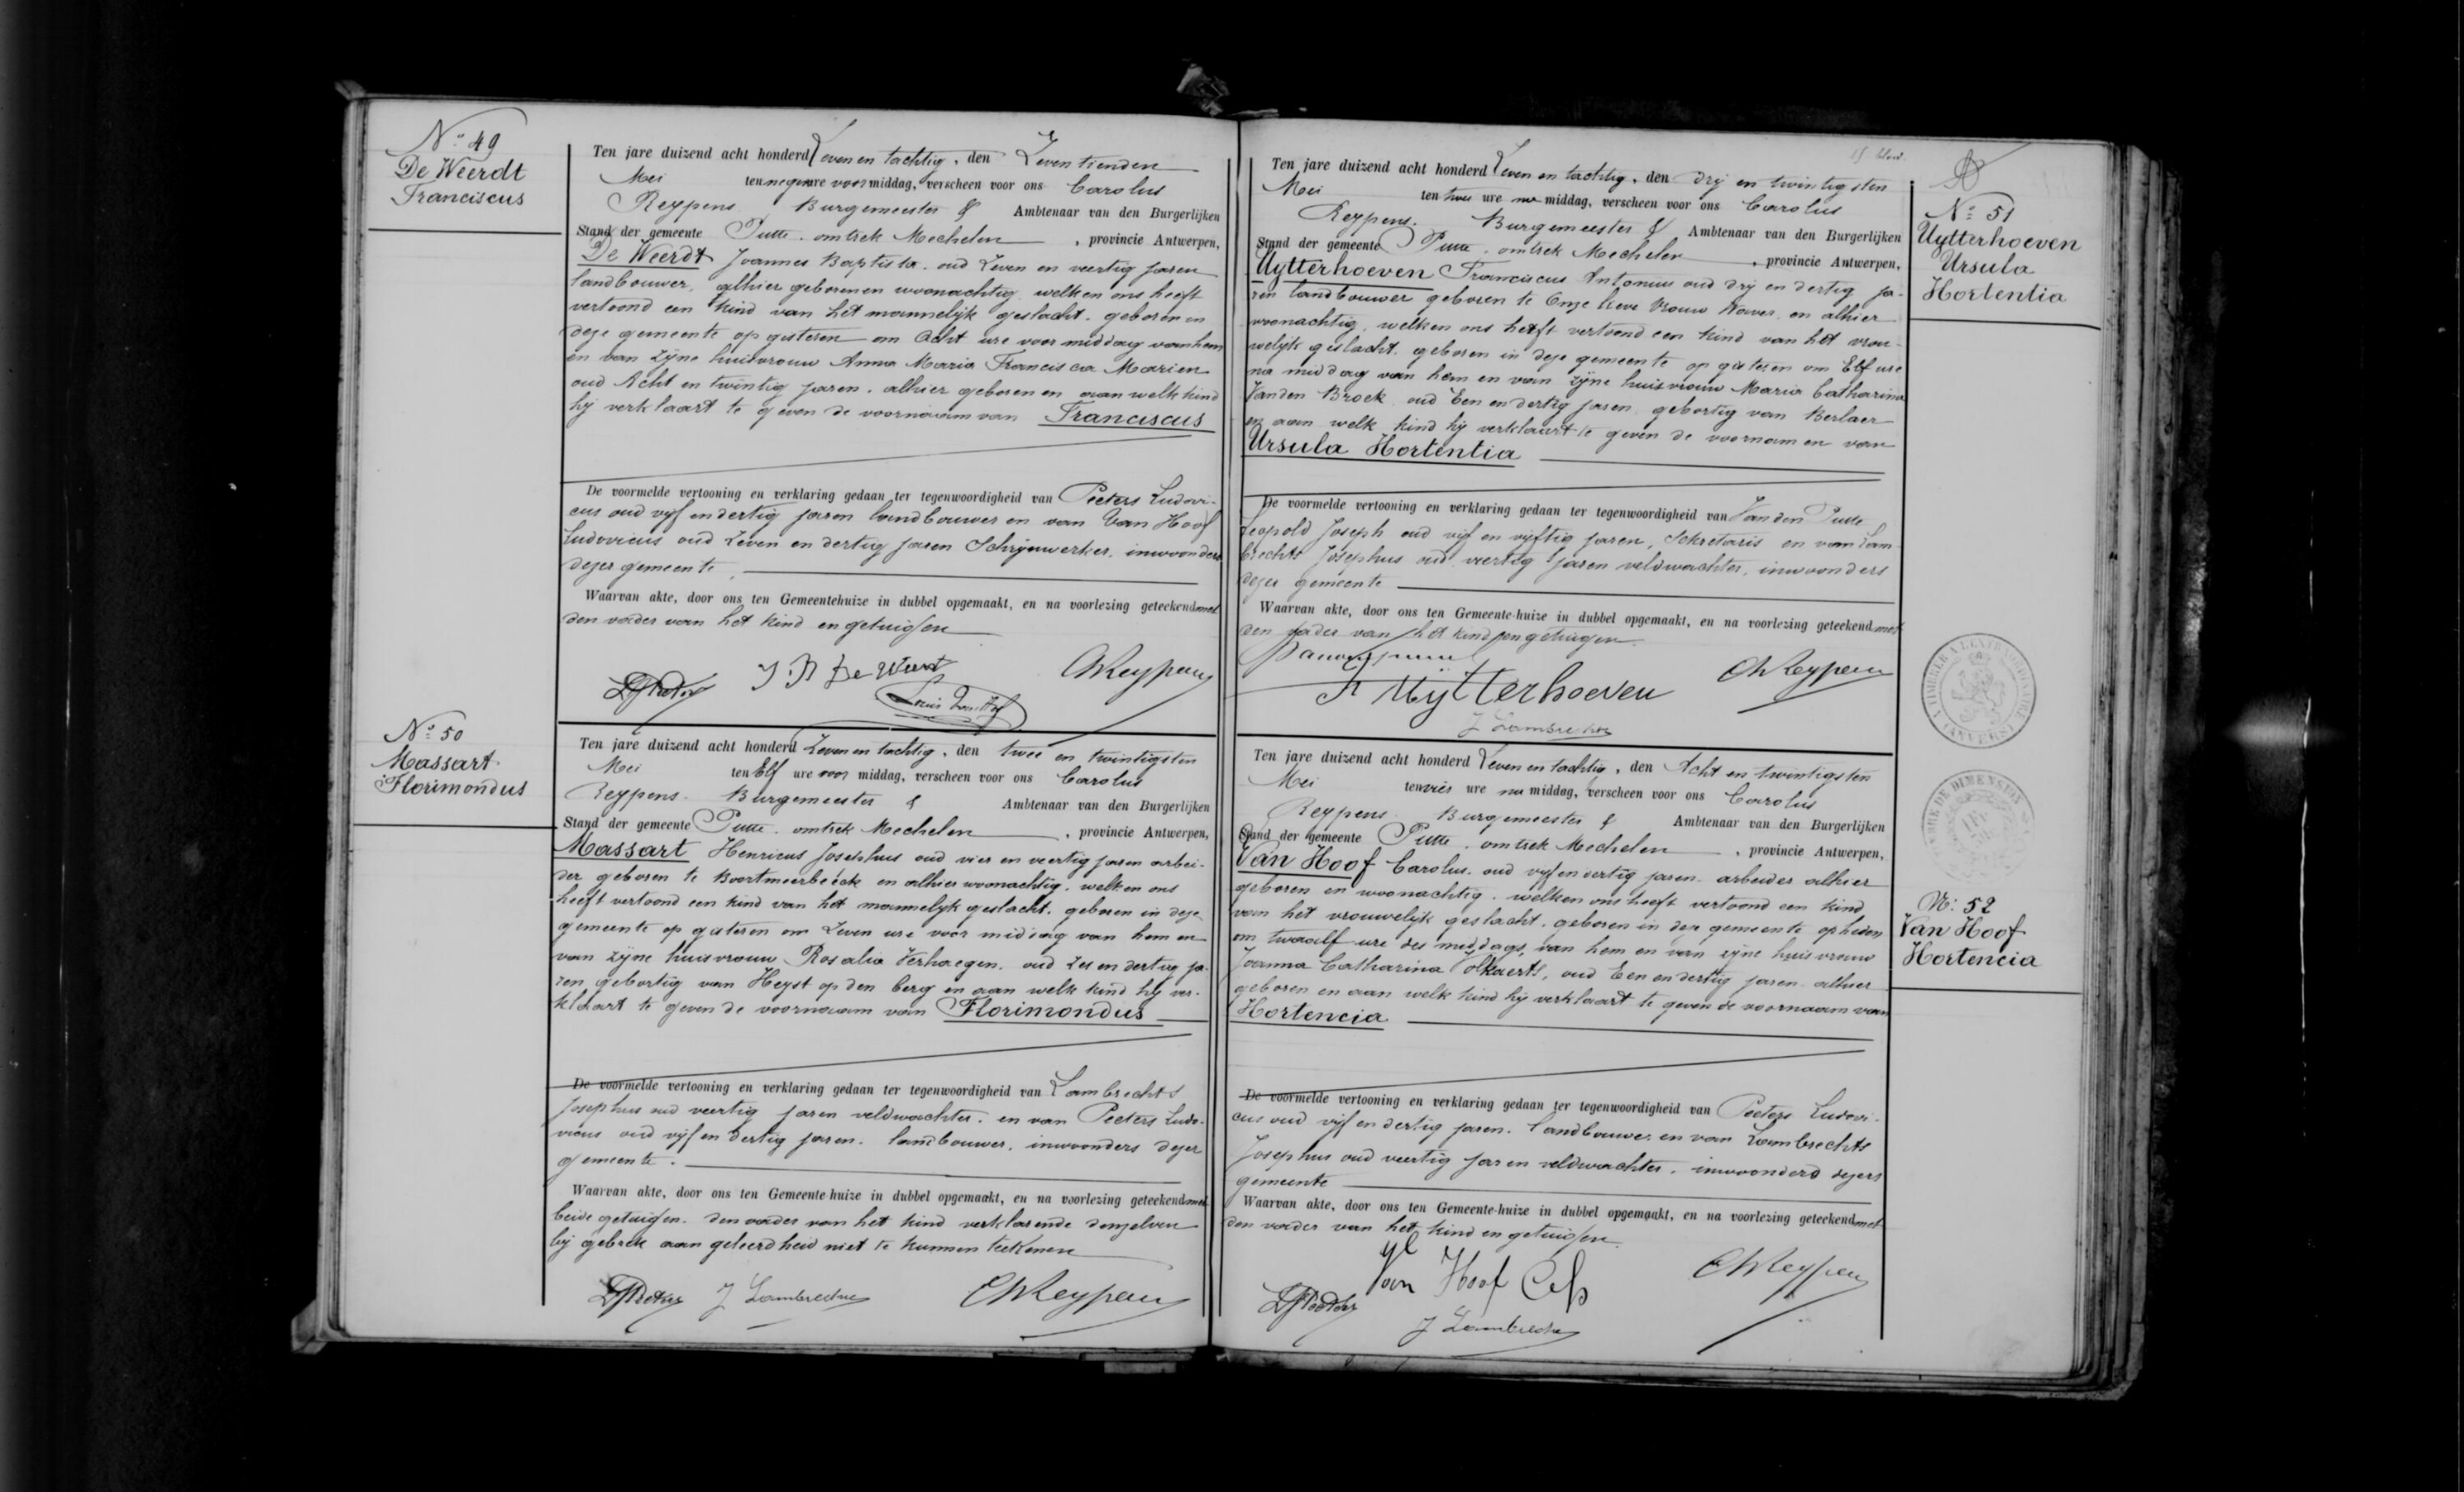 Nº 49
De Weerdt
Franciscus
Ten jare duizend acht honderd Zeven en tachtig, den Zeventienden
Mei ten negen ure voor middag, verscheen voor ons Carolus
Reypens Burgemeester & Ambtenaar van den Burgerlijken
Stand der gemeente Putte. omtrek Mechelen, provincie Antwerpen,
De Weerdt Joannes Baptista. oud Zeven en veertig jaren
landbouwer, alhier geboren en woonachtig, welken ons heeft
vertoond een kind van het mannelijk geslacht. geboren in
deze gemeente op gisteren om Acht ure voor middag van hem
en van zijne huisvrouw Anna Maria Francisca Marien
oud Acht en twintig jaren. alhier geboren en aan welk kind
hij verklaart te geven de voornaam van Franciscus
De voormelde vertooning en verklaring gedaan ter tegenwoordigheid van Peeters Ludovi-
cus oud vijf en dertig jaren landbouwer en van Van Hoof
Ludovicus oud Zeven en dertig jaren Schrijnwerker, inwoonders
dezer gemeente,
Waarvan akte, door ons ten Gemeentehuize in dubbel opgemaakt, en na voorlezing geteekend met
den vader van het kind en getuigen
J B De Weert
ChReypens
Louis Van Hoof
Nº 50
Massart
Florimondus
Ten jare duizend acht honderd Zeven en tachtig, den twee en twintigsten
Mei ten Elf ure voor middag, verscheen voor ons Carolus
Reypens. Burgemeester & Ambtenaar van den Burgerlijken
Stand der gemeente Putte. omtrek Mechelen, provincie Antwerpen,
Massart Henricus Josephus oud vier en veertig jaren arbei-
der geboren te Boortmeerbeeck en alhier woonachtig. welken ons
heeft vertoond een kind van het mannelyk geslacht. geboren in deze
gemeente op gisteren om Zeven ure voor middag van hem en
van zijne huisvrouw Rosalia Verhaegen. oud zes en dertig ja-
ren gebortig van Heyst op den berg en aan welk kind hij ver-
klaart te geven de voornaam van Florimondus
De voormelde vertooning en verklaring gedaan ter tegenwoordigheid van Lambrechts
Josephus oud veertig jaren veldwachter. en van Peeters Ludo-
vicus oud vijf en dertig jaren. landbouwer. inwoonders dezer
gemeente.
Waarvan akte, door ons ten Gemeente-huize in dubbel opgemaakt, en na voorlezing geteekend met
beide getuigen. den vader van het kind verklarende denzelven
bij gebrek aan geleerdheid niet te kunnen teekenen
J Lambrechts
ChReypens
Nº 51
Uytterhoeven
Ursula
Hortentia
Ten jare duizend acht honderd Zeven en tachtig, den drij en twintigsten
Mei ten twee ure na middag, verscheen voor ons Carolus
Reypens. Burgemeester & Ambtenaar van den Burgerlijken
Stand der gemeente Putte. omtrek Mechelen, provincie Antwerpen,
Uytterhoeven Franciscus Antonius oud drij en dertig ja-
ren landbouwer geboren te Onze lieve Vrouw Waver. en alhier
woonachtig, welken ons heeft vertoond een kind van het vrou-
welyk geslacht. geboren in deze gemeente op gisteren om Elf ure
na middag van hem en van zijne huisvrouw Maria Catharina
Van den Broek. oud Een en dertig jaren gebortig van Berlaer
en aan welk kind hij verklaart te geven de voornamen van
Ursula Hortentia
De voormelde vertooning en verklaring gedaan ter tegenwoordigheid van Van den Putte
Leopold Joseph oud vijf en vijftig jaren, Sekretaris en van Lam-
brechts Josephus oud veertig jaren veldwachter, inwoonders
dezer gemeente
Waarvan akte, door ons ten Gemeente-huize in dubbel opgemaakt, en na voorlezing geteekend met
den vader van het kind en getuigen.
F Uytterhoeven
ChReypens
J Lambrechts
Ten jare duizend acht honderd Zeven en tachtig, den Acht en twintigsten
Mei ten vier ure na middag, verscheen voor ons Carolus
Reypens. Burgemeester & Ambtenaar van den Burgerlijken
Stand der gemeente Putte. omtrek Mechelen, provincie Antwerpen,
Van Hoof Carolus. oud vijf en dertig jaren. arbeider alhier
geboren en woonachtig. welken ons heeft vertoond een kind
van het vrouwelijk geslacht. geboren in dezer gemeente op heden
om twaalf ure des middags, van hem en van zijne huisvrouw
Joanna Catharina Olkaerts, oud Een en dertig jaren alhier
geboren en aan welk kind hij verklaart te geven de voornaam van
Hortencia
De voormelde vertooning en verklaring gedaan ter tegenwoordigheid van Peeters Ludovi-
cus oud vijf en dertig jaren. landbouwer. en van Lambrechts
Josephus oud veertig jaren veldwachter. inwoonders dezers
gemeente
Waarvan akte, door ons ten Gemeente-huize in dubbel opgemaakt, en na voorlezing geteekend met
den vader van het kind en getuigen.
Van Hoof
ChReypens
J Lambrechts
Nº 52
Van Hoof
Hortencia